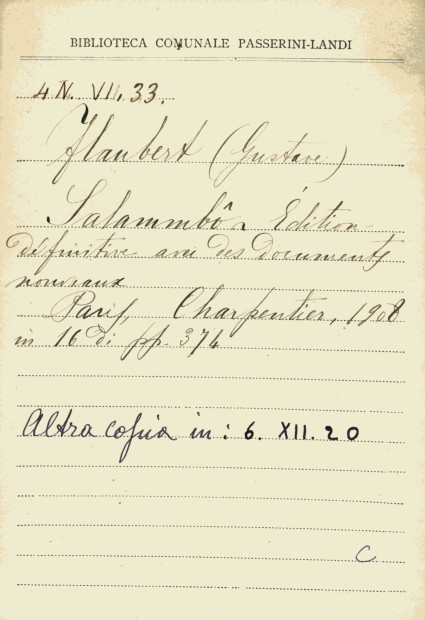 BIBLIOTECA COMUNALE PASSERINI-LANDI
4 N. VII. 33.
Flaubert (Gustave)
Salammbô - Édition
définitive avec des documents
nouveaux
Paris, Charpentier, 1908
in 16° di pp. 374
Altra copia in: 6. XII. 20
C